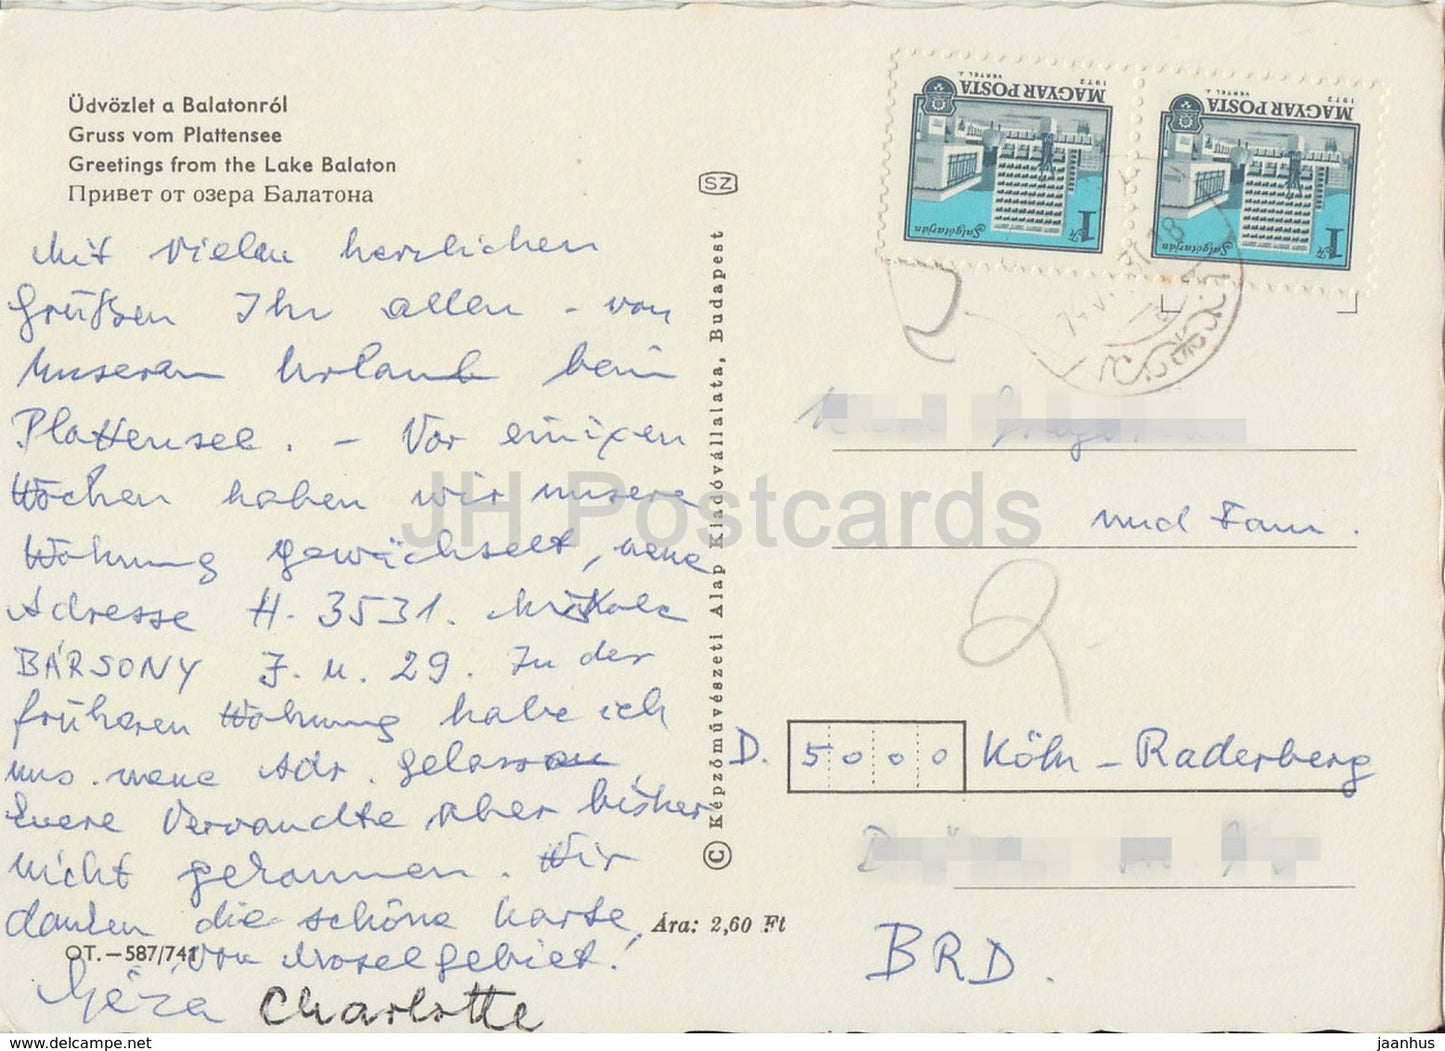 Üdvözlet a Balatonról
Gruss vom Plattensee
Greetings from the Lake Balaton
Привет от озера Балатона
Mit vielen herzlichen
Grüßen Ihr allen - von
unseren Urlaub beim
Plattensee. - Vor einigen
Wochen haben wir unsere
Wohnung gewächselt, neue
Adresse H. 3531. Miskolc
BÁRSONY J. u. 29. In der
früheren Wohnung habe ich
uns. neue Adr. gelassen,
Euere Verwandte aber bisher
nicht gekommen. Wir
danken die schöne Karte,
von Moselgebiet!
Géza Charlotte
OT.-587/741
Ára: 2,60 Ft
© Képzőművészeti Alap Kiadóvállalata, Budapest
SZ
MAGYAR POSTA
1972
VERTEL J.
Salgótarján
1 Ft
MAGYAR POSTA
1972
VERTEL J.
Salgótarján
1 Ft
und Fam.
2
D. 5000 Köln - Raderberg
BRD.
JH Postcards
www.delcampe.net
jaanhus